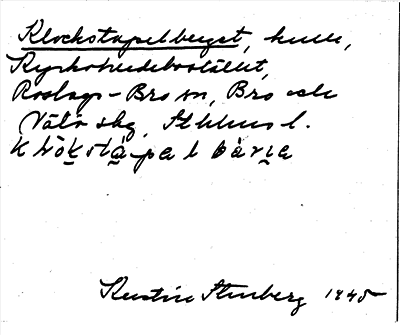 Klockstapelberget, kulle,
Kyrkoherdebostället,
Roslags-Bro sn, Bro och
Vätö skg, Sthlms l.
klòkstàpəlbärɪə
Kerstin Stenberg 1945